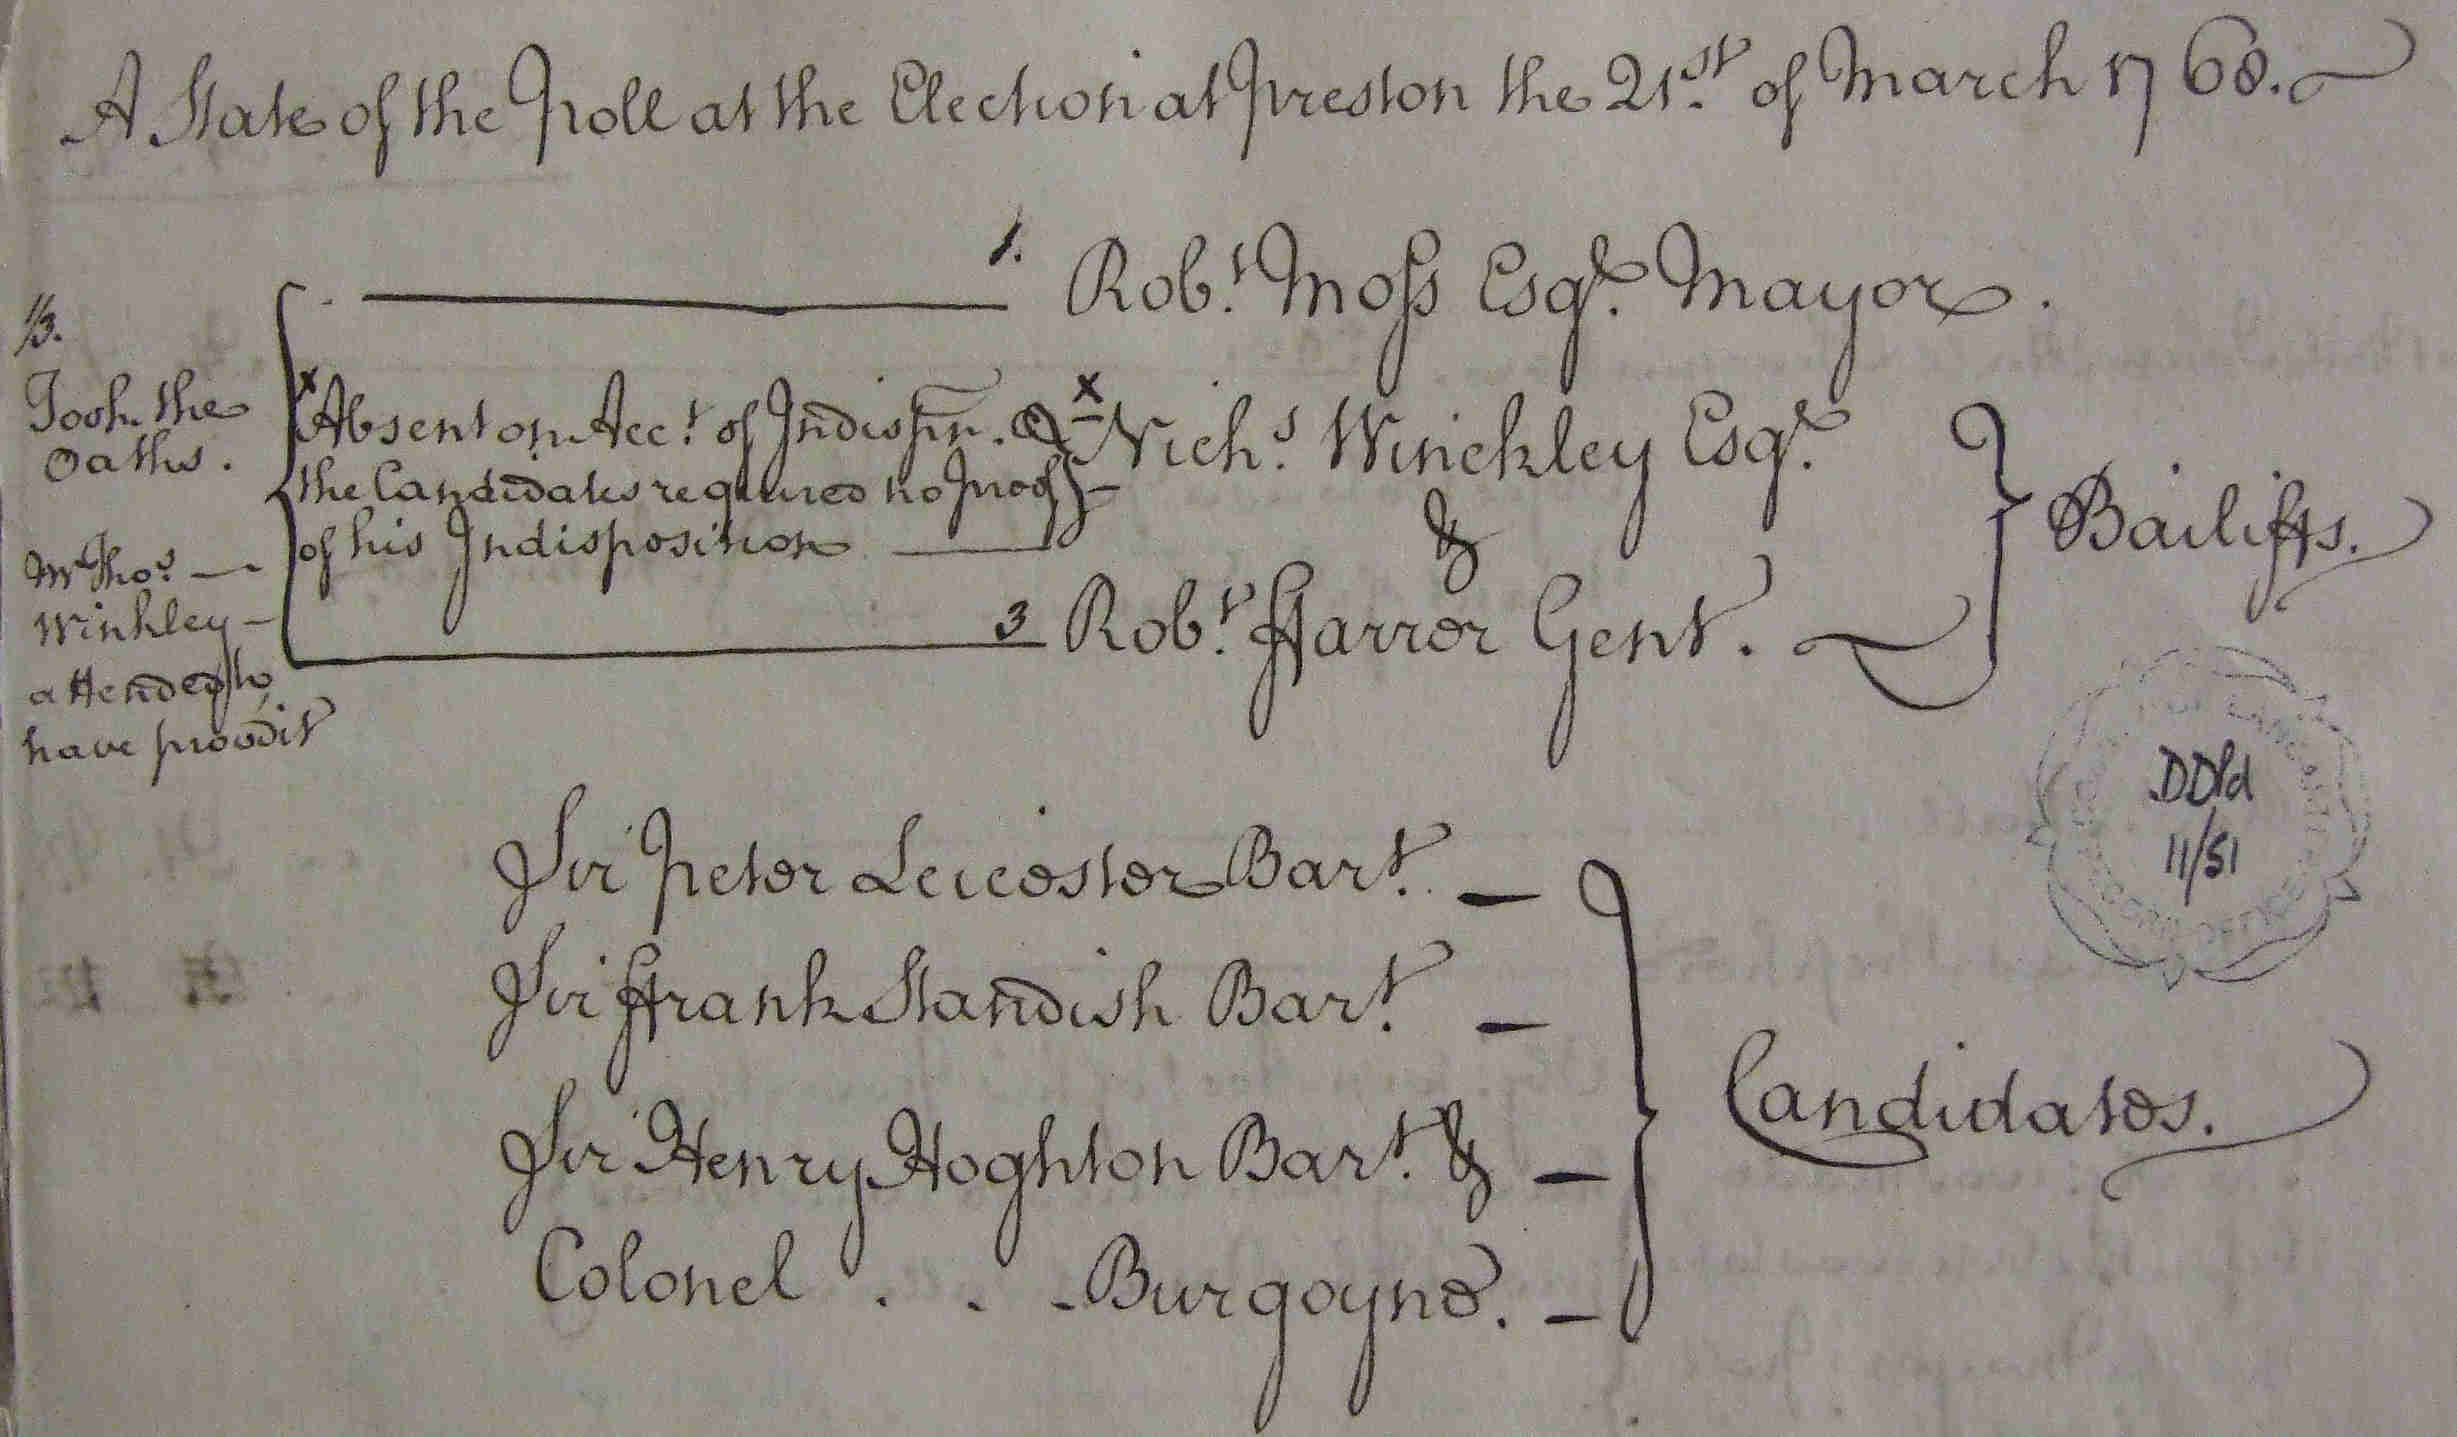 A State of the Poll at the Election at Preston the 21.st of March 1768.
1. Rob.t Moss Esq.r Mayor.
1/3.
Took the
Oaths.
x Absent on Acc.t of Indispn. &
the Candidates required no Proof
of his Indisposition
x Nich.s Winckley Esq.r
&
3 Rob.t Ffarror Gent.
Bailiffs.
Mr Tho.s
Winkley
attended to
have prov'd it
Sir Peter Leicester Bar.t
Sir Ffrank Standish Bar.t
Sir Henry Hoghton Bar.t &
Colonel . . . Burgoyne.
Candidates.
DDPd
11/51
RECORD OFFICE